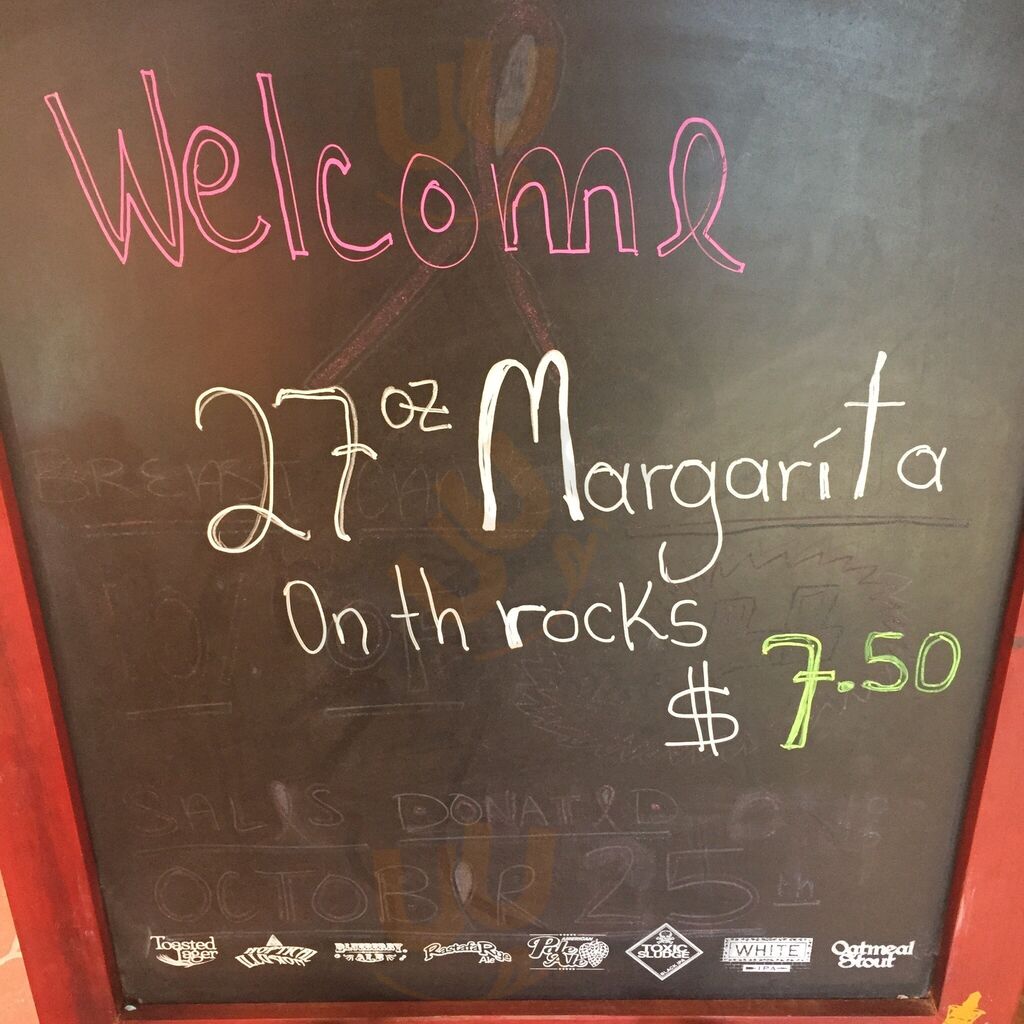 Welcome
27 oz Margarita
On th rocks
$ 7.50
BREAST CAN
SALES DONATED ON
OCTOBER 25th
Toasted Lager
BLUEBERRY ALE
RastafaRye Ale
AMERICAN Pale Ale
TOXIC SLUDGE BLACK IPA
WHITE IPA
Oatmeal Stout